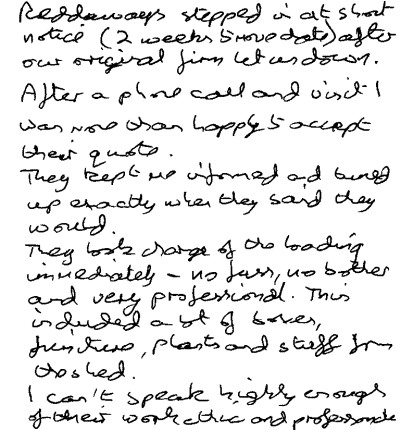 Reddaways stepped in at short
notice (2 weeks to move date) after
our original firm let us down.
After a phone call and visit I
was more than happy to accept
their quote.
They kept me informed and turned
up exactly when they said they
would.
They took charge of the loading
immediately - no fuss, no bother
and very professional. This
included a lot of boxes,
furniture, plants and stuff from
the shed.
I can't speak highly enough
of their work ethic and